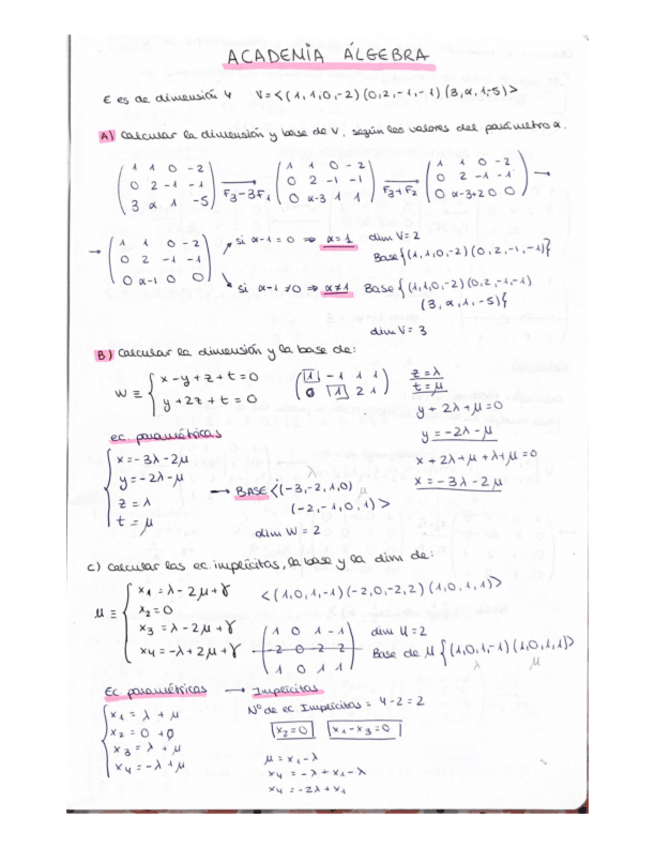 ACADEMIA ÁLGEBRA
E es de dimensión 4 V=<(1,1,0,-2)(0,2,-1,-1)(3,α,1,-5)>
A) Calcular la dimensión y base de V, según los valores del parámetro α.
1 1 0 -2
0 2 -1 -1
3 α 1 -5
F3-3F1
1 1 0 -2
0 2 -1 -1
0 α-3 1 1
F3+F2
1 1 0 -2
0 2 -1 -1
0 α-3+2 0 0
→
→
1 1 0 -2
0 2 -1 -1
0 α-1 0 0
si α-1=0 ⇒ α=1 dim V=2
Base{(1,1,0,-2)(0,2,-1,-1)}
si α-1≠0 ⇒ α≠1 Base{(1,1,0,-2)(0,2,-1,-1)
(3,α,1,-5)}
dim V=3
B) Calcular la dimensión y la base de:
W ≡ { x-y+z+t=0
y+2z+t=0
1 -1 1 1
0 1 2 1
z=λ
t=μ
y+2λ+μ=0
y=-2λ-μ
x+2λ+μ+λ+μ=0
x=-3λ-2μ
ec. paramétricas
x=-3λ-2μ
y=-2λ-μ
z=λ
t=μ
→ BASE <(-3,-2,1,0) λ
(-2,-1,0,1)> μ
dim W=2
C) Calcular las ec. implícitas, la base y la dim de:
μ ≡ { x1=λ-2μ+γ
x2=0
x3=λ-2μ+γ
x4=-λ+2μ+γ
<(1,0,1,-1)(-2,0,-2,2)(1,0,1,1)>
1 0 1 -1
-2 0 -2 2
1 0 1 1
dim U=2
Base de μ {(1,0,1,-1)(1,0,1,1)>
λ μ
Ec. paramétricas → Implícitas
x1=λ+μ
x2=0+0
x3=λ+μ
x4=-λ+μ
Nº de ec. Implícitas = 4-2=2
x2=0 x1-x3=0
μ=x1-λ
x4=-λ+x1-λ
x4=-2λ+x1